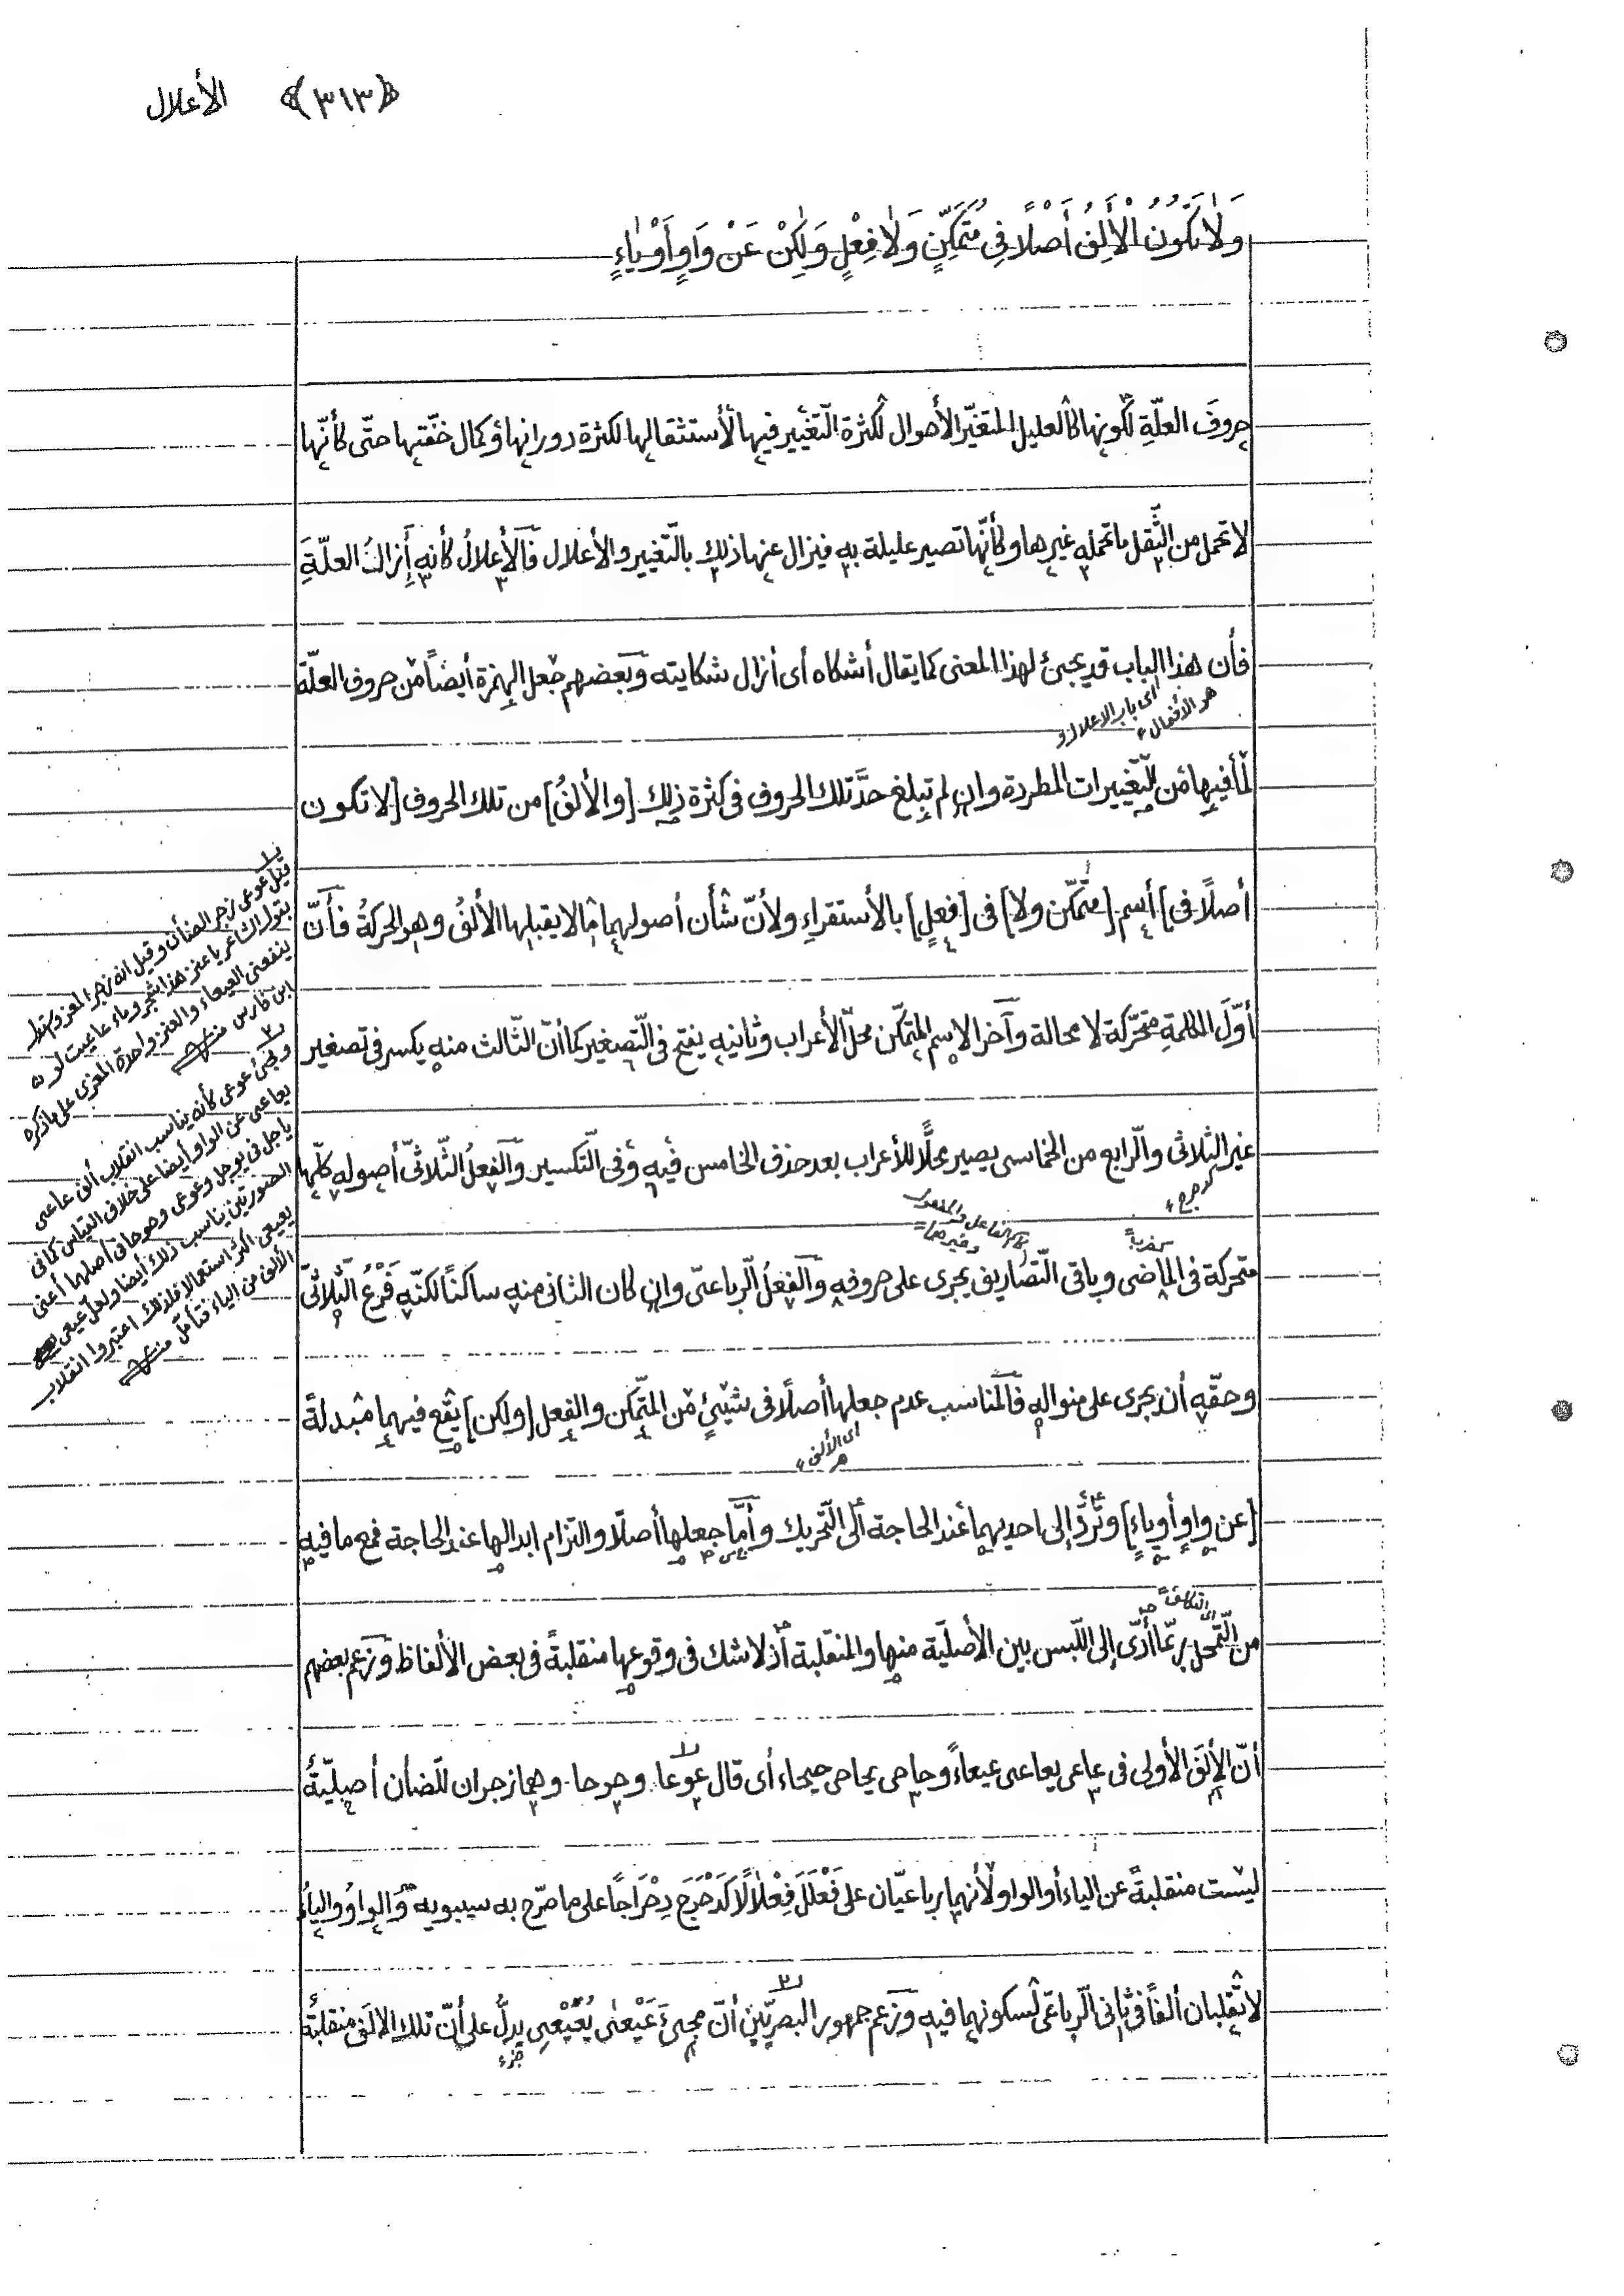 الأعلال ﴿٣١٣﴾
وَلَا تَكُونُ الْأَلِفُ أَصْلًا فِي مُتَمَكِّنٍ وَلَا فِعْلٍ وَلٰكِنْ عَنْ وَاوٍ أَوْ يَاءٍ
حروفَ العلّةِ لكونها كالعليل المتغيّر الأحوال لكثرة التّغيير فيها لأستثقالها لكثرة دورانها وكمال خفّتها حتّى كأنّها
لا تحمل من الثّقل ما تحمله غيرها وكأنّها تصير عليلة به فيزال عنها ذلك بالتّغيير والأعلال فالأعلالُ كأنه أِزالةُ العلّةِ
فأن هذا الباب قد يجئ لهذا المعنى كما يقال أشكاه أى أزال شكايته وبعضهم جعل الهمزة أيضاً من حروف العلّة
اى باب الاعلال و
هو الأفعال
لما فيها من التّغييرات المطردة وان لم تبلغ حدَّ تلك الحروف فى كثرة ذلك [والألفُ] من تلك الحروف [لا تكون
أصلًا فى] أسم [متمكّن ولا] فى [فعلٍ] بالأستقراءِ ولأنّ شأن أصولهما مما لا يقبلها الألفُ وهو الحركةُ فأنّ
أوّلَ الكلمةِ متحرّكة لا محالة وآخر الاسم المتمكّن محلّ الأعراب وثانيه يفتح فى التّصغير كما أنّ الثّالث منه يكسر فى تصغير
غير الثلاثى والرّابع من الخماسى يصير محلًّا للأعراب بعد حذف الخامس فيه وفى التّكسير والفعلُ الثّلاثىّ أصوله كلّها
كدحرج
كضرباً
كالفاعل والمفعول
وغيرهما
متحركة فى الماضى وباقى التّصاريف يجرى على حروفه والفعلُ الرّباعىّ وان كان الثانى منه ساكناً لكنّه فَرْعُ الثّلاثىّ
وحقّه أن يجرى على منواله فالمناسب عدم جعلها أصلًا فى شيْئٍ من المتمّكن والفعل [ولكن] يقع فيهما مبدلةً
اى الألف
[عن واوٍ أو ياءٍ] وتُردُّ إلى احديهما عند الحاجة ألى التّحريك وأمّا جعلها أصلًا والتزام ابدالها عند الحاجة فمع ما فيه
اى التكلف
من التّمحل ربّما أدّى إلى اللّبس بين الأصليّة منها والمنقلبة أذ لا شك فى وقوعها منقلبةً فى بعض الألفاظ وزعم بعضهم
أنّ الألِفَ الأولى فى عاعى يعاعى عيعاءً وحاحى يحاحى حيحاء أى قال عوعا وحوحا وهما زجران للضأن أصليّةٌ
ليست منقلبةً عن الياء أو الواو لأنهما رباعيّان على فَعْلَلَ فِعْلَالًا كَدَحْرَجَ دِحْرَاجًا على ما صرّح به سيبويه والواوُ والياءُ
لا تقلبان ألفاً فى ثانى الرّباعىّ لسكونهما فيه وزعم جمهور البصريّين أنّ مجئَ عَيْعٰى يُعَيْعِى يدلُّ على أنّ تلك الالف منقلبةٌ
قيل عوعى زجر الضأن وقيل انه زجر المعز
بقول الشاعر يا عنز هذا شجر وماء عاعيت لو
ينفعنى العيعاء والعنز واحدة المعزى على ما ذكره
ابن فارس منه
ومجئ عوعى كأنه يناسب انقلاب ألف عاعى
يعاعى عن الواو أيضا على خلاف القياس كما فى
ياجل فى يوجل وعوعى وحوحا فى أصلهما أعنى
الصورتين يناسب ذلك أيضا ولعل عيعى
يعيعى اكثر استعمالا فلذلك اعتبروا انقلاب
الألف من الياء فتأمل منه